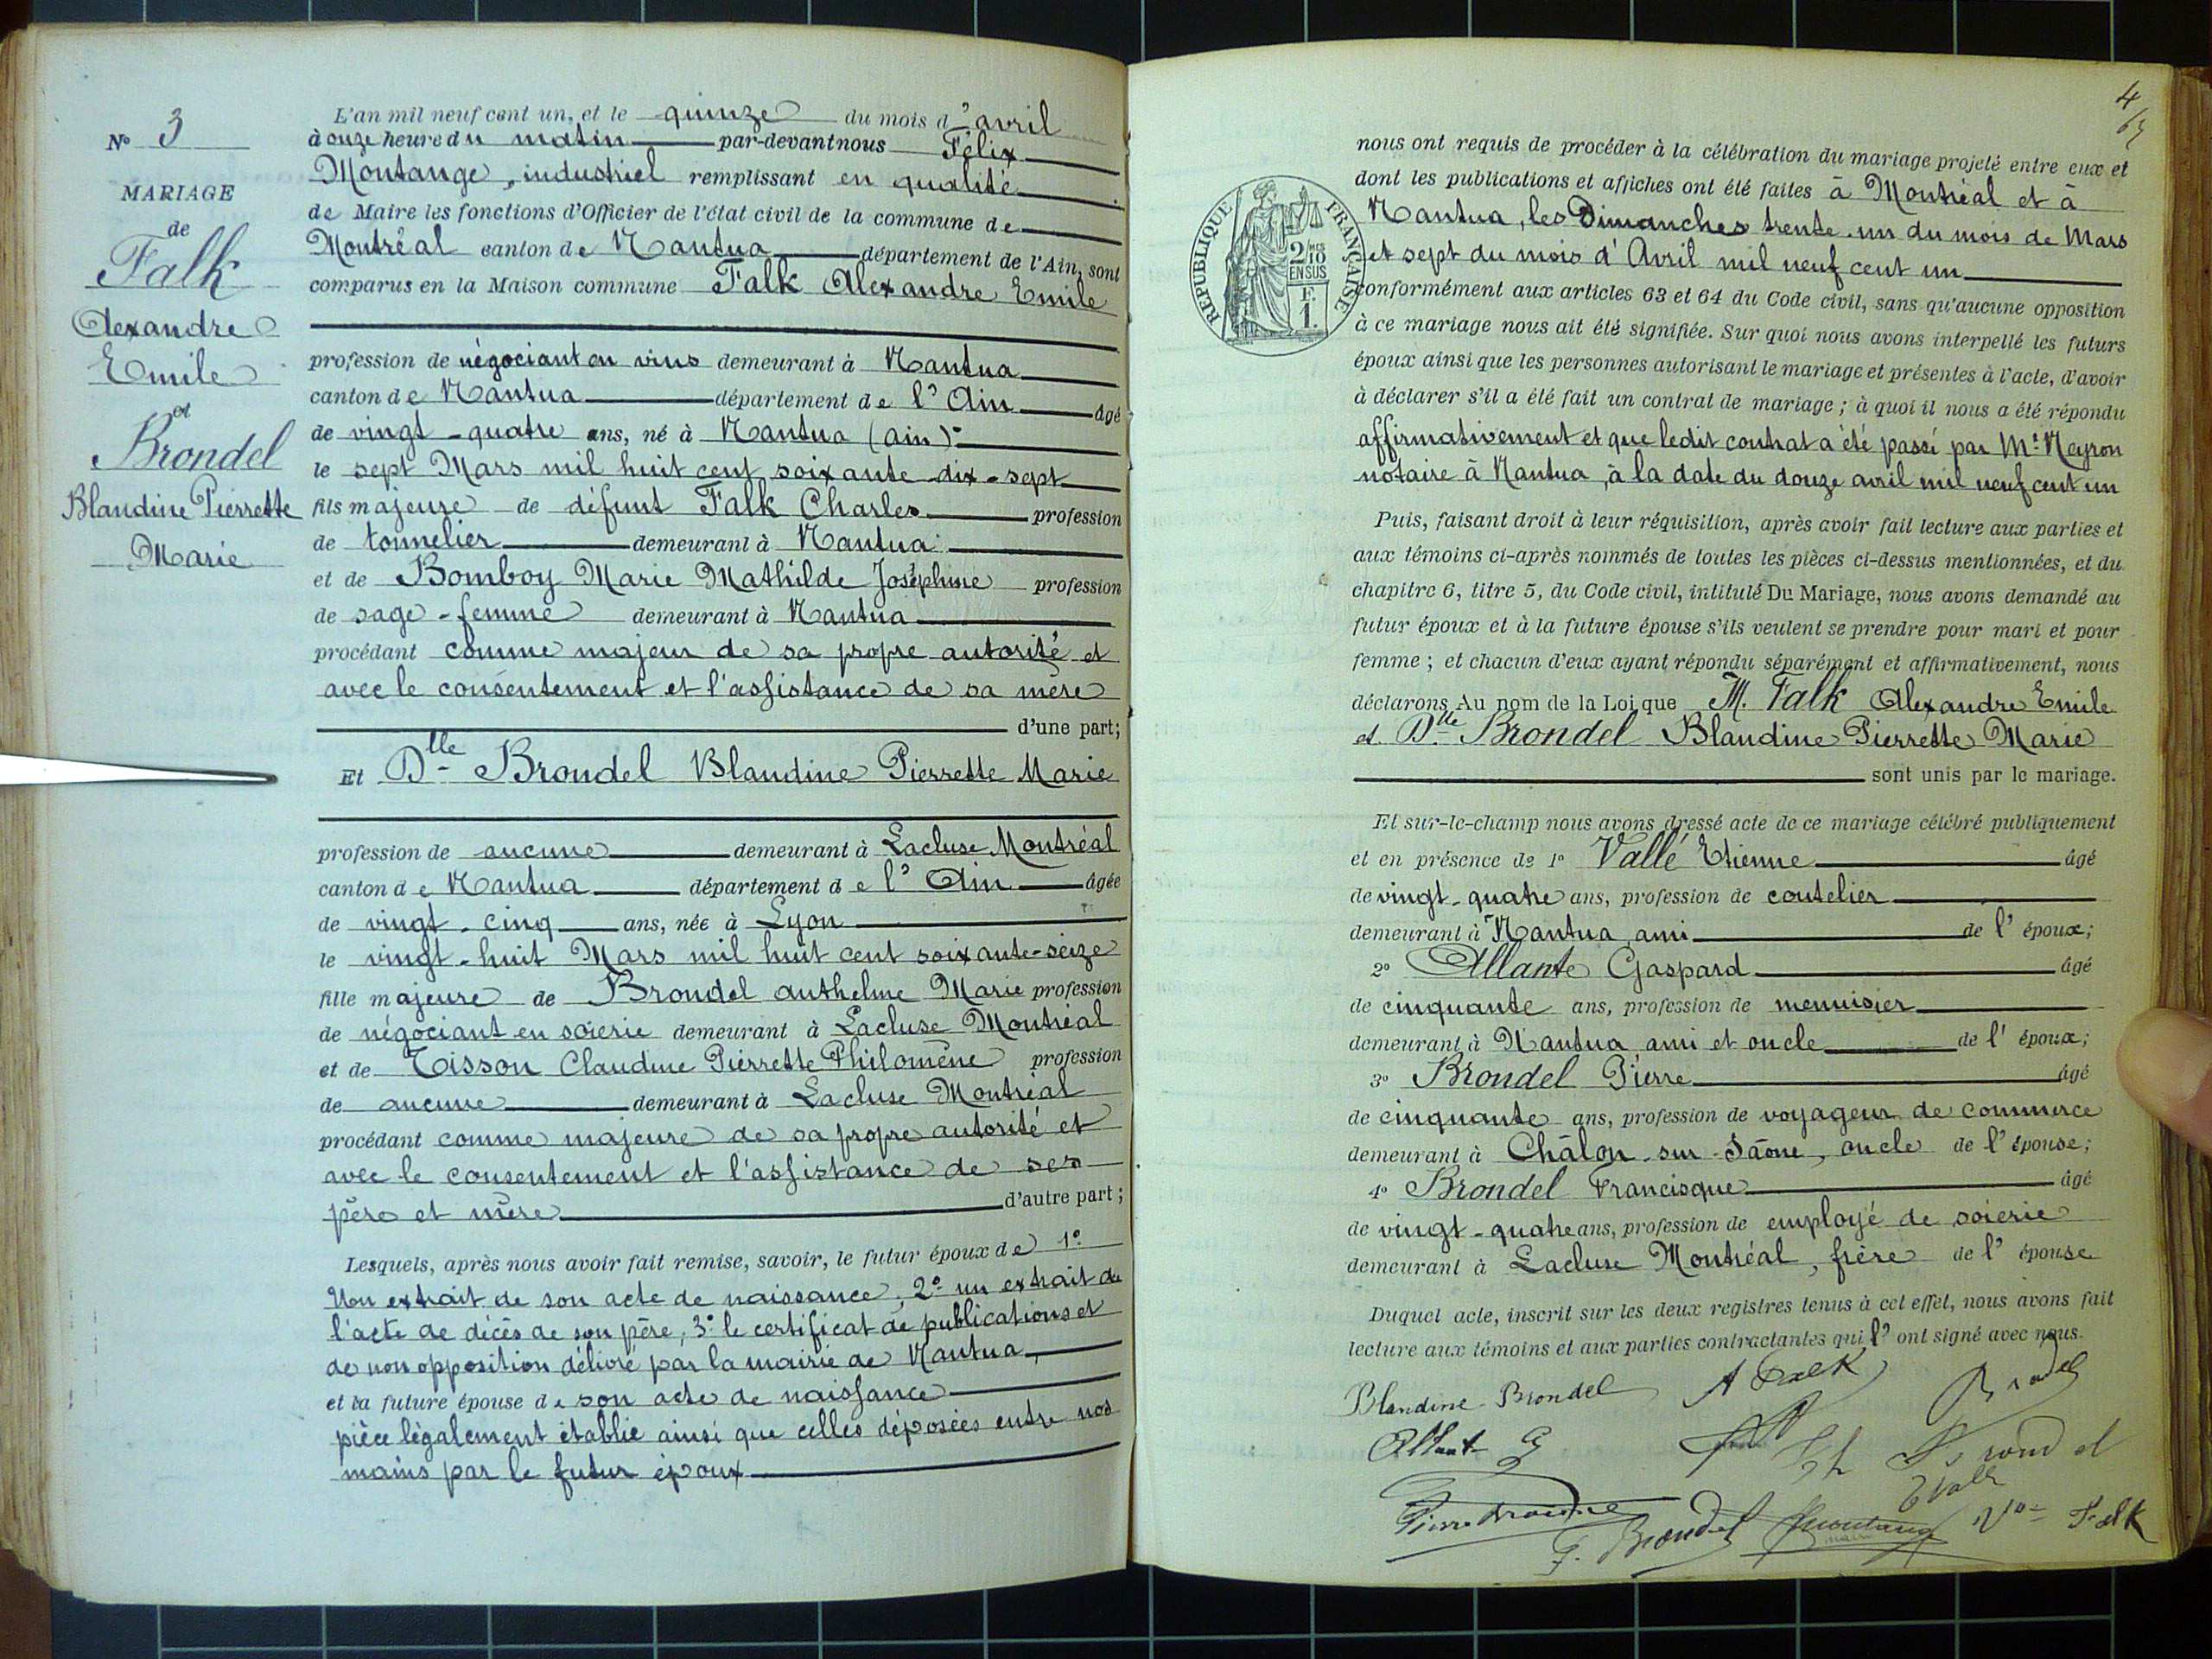 N° 3
MARIAGE
de
Falk
Alexandre
Emile
et
Brondel
Blandine Pierrette
Marie
L'an mil neuf cent un, et le quinze du mois d'avril
à onze heure du matin par-devant nous Félix
Montange, industriel remplissant en qualité
de Maire les fonctions d'Officier de l'état civil de la commune de
Montréal canton de Nantua département de l'Ain, sont
comparus en la Maison commune Falk Alexandre Emile
profession de négociant en vins demeurant à Nantua
canton de Nantua département de l'Ain âgé
de vingt-quatre ans, né à Nantua (ain)
le sept Mars mil huit cent soixante-dix-sept
fils majeure de défunt Falk Charles profession
de tonnelier demeurant à Nantua
et de Bomboy Marie Mathilde Joséphine profession
de sage-femme demeurant à Nantua
procédant comme majeur de sa propre autorité et
avec le consentement et l'assistance de sa mère
d'une part;
Et Dlle Brondel Blandine Pierrette Marie
profession de aucune demeurant à Lacluse Montréal
canton de Nantua département de l'Ain âgée
de vingt-cinq ans, née à Lyon
le vingt-huit Mars mil huit cent soixante-seize
fille majeure de Brondel anthelme Marie profession
de négociant en soierie demeurant à Lacluse Montréal
et de Tisson Claudine Pierrette Philomène profession
de aucune demeurant à Lacluse Montréal
procédant comme majeure de sa propre autorité et
avec le consentement et l'assistance de ses
père et mère d'autre part;
Lesquels, après nous avoir fait remise, savoir, le futur époux de 1°
Un extrait de son acte de naissance, 2° un extrait de
l'acte de décès de son père, 3° le certificat de publications et
de non opposition délivré par la mairie de Nantua,
et la future épouse de son acte de naissance
pièce légalement établie ainsi que celles déposées entre nos
mains par le futur époux
4
nous ont requis de procéder à la célébration du mariage projeté entre eux et
dont les publications et affiches ont été faites à Montréal et à
Nantua, les Dimanches trente-un du mois de Mars
et sept du mois d'Avril mil neuf cent un
conformément aux articles 63 et 64 du Code civil, sans qu'aucune opposition
à ce mariage nous ait été signifiée. Sur quoi nous avons interpellé les futurs
époux ainsi que les personnes autorisant le mariage et présentes à l'acte, d'avoir
à déclarer s'il a été fait un contrat de mariage; à quoi il nous a été répondu
affirmativement et que ledit contrat a été passé par Me Neyron
notaire à Nantua, à la date du douze avril mil neuf cent un
RÉPUBLIQUE FRANÇAISE
2/10 EN SUS
F. 1.
Puis, faisant droit à leur réquisition, après avoir fait lecture aux parties et
aux témoins ci-après nommés de toutes les pièces ci-dessus mentionnées, et du
chapitre 6, titre 5, du Code civil, intitulé Du Mariage, nous avons demandé au
futur époux et à la future épouse s'ils veulent se prendre pour mari et pour
femme; et chacun d'eux ayant répondu séparément et affirmativement, nous
déclarons Au nom de la Loi que M. Falk Alexandre Emile
et Dlle Brondel Blandine Pierrette Marie
sont unis par le mariage.
Et sur-le-champ nous avons dressé acte de ce mariage célébré publiquement
et en présence de 1° Vallé Etienne âgé
de vingt-quatre ans, profession de coutelier
demeurant à Nantua ami de l'époux;
2° Allante Gaspard âgé
de cinquante ans, profession de menuisier
demeurant à Nantua ami et oncle de l'époux;
3° Brondel Pierre âgé
de cinquante ans, profession de voyageur de commerce
demeurant à Châlon-sur-Saône, oncle de l'épouse;
4° Brondel Francisque âgé
de vingt-quatre ans, profession de employé de soierie
demeurant à Lacluse Montréal, frère de l'épouse
Duquel acte, inscrit sur les deux registres tenus à cet effet, nous avons fait
lecture aux témoins et aux parties contractantes qui l'ont signé avec nous.
Blandine Brondel A Falk
Allante G
Pierre Brondel
F. Brondel Montange Vve Falk